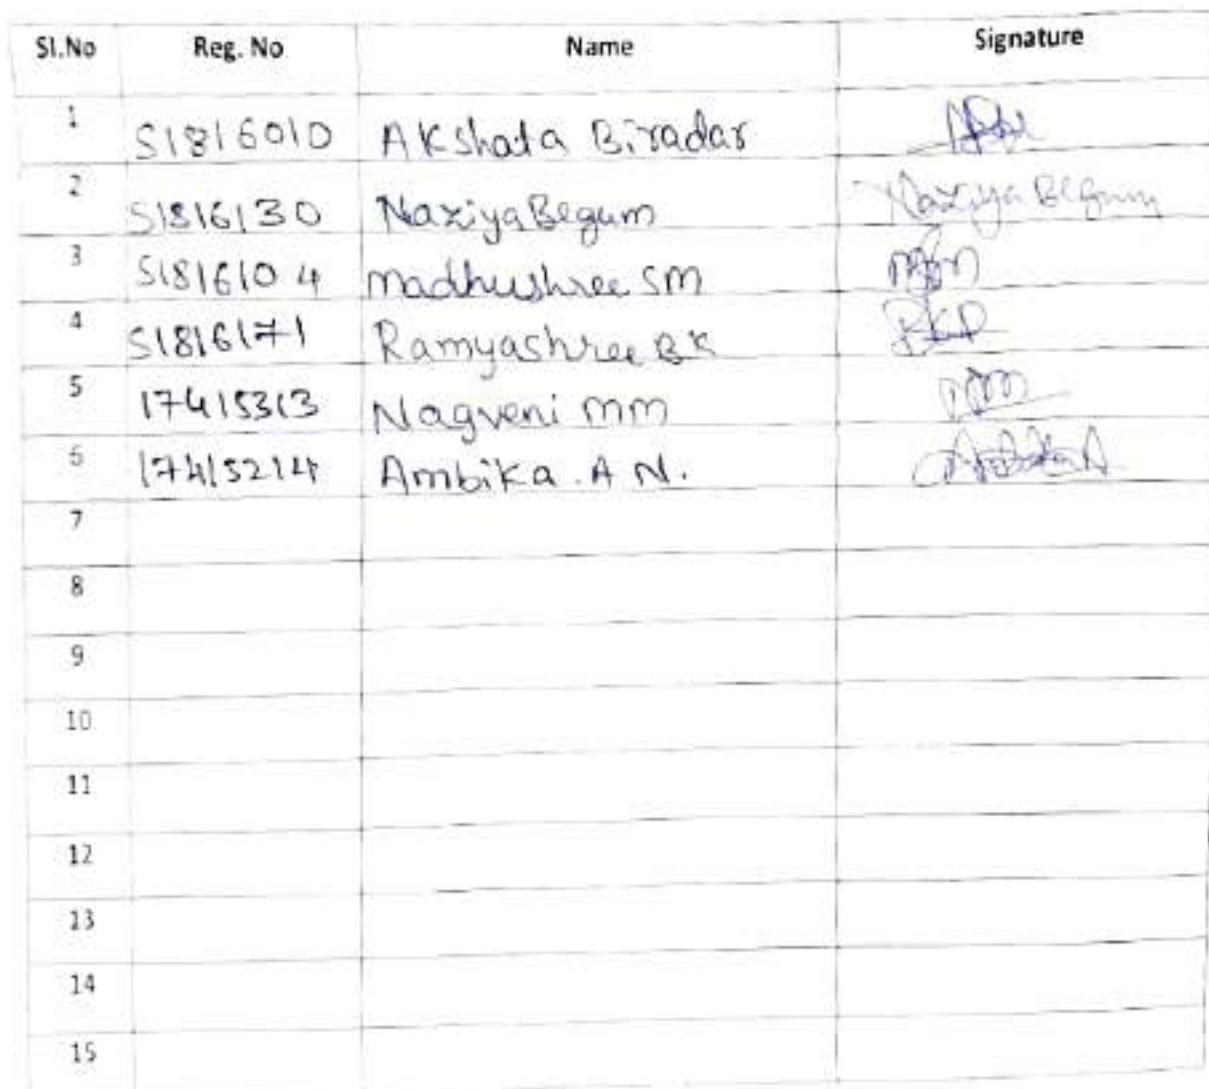 Sl.No Reg. No Name Signature
1 S1816010 Akshata Biradar
2 S1816130 Naziya Begum Naziya Begum
3 S1816104 Madhushree SM
4 S1816171 Ramyashree BK
5 17415313 Nagveni mm
6 17415214 Ambika .A N.
7
8
9
10
11
12
13
14
15